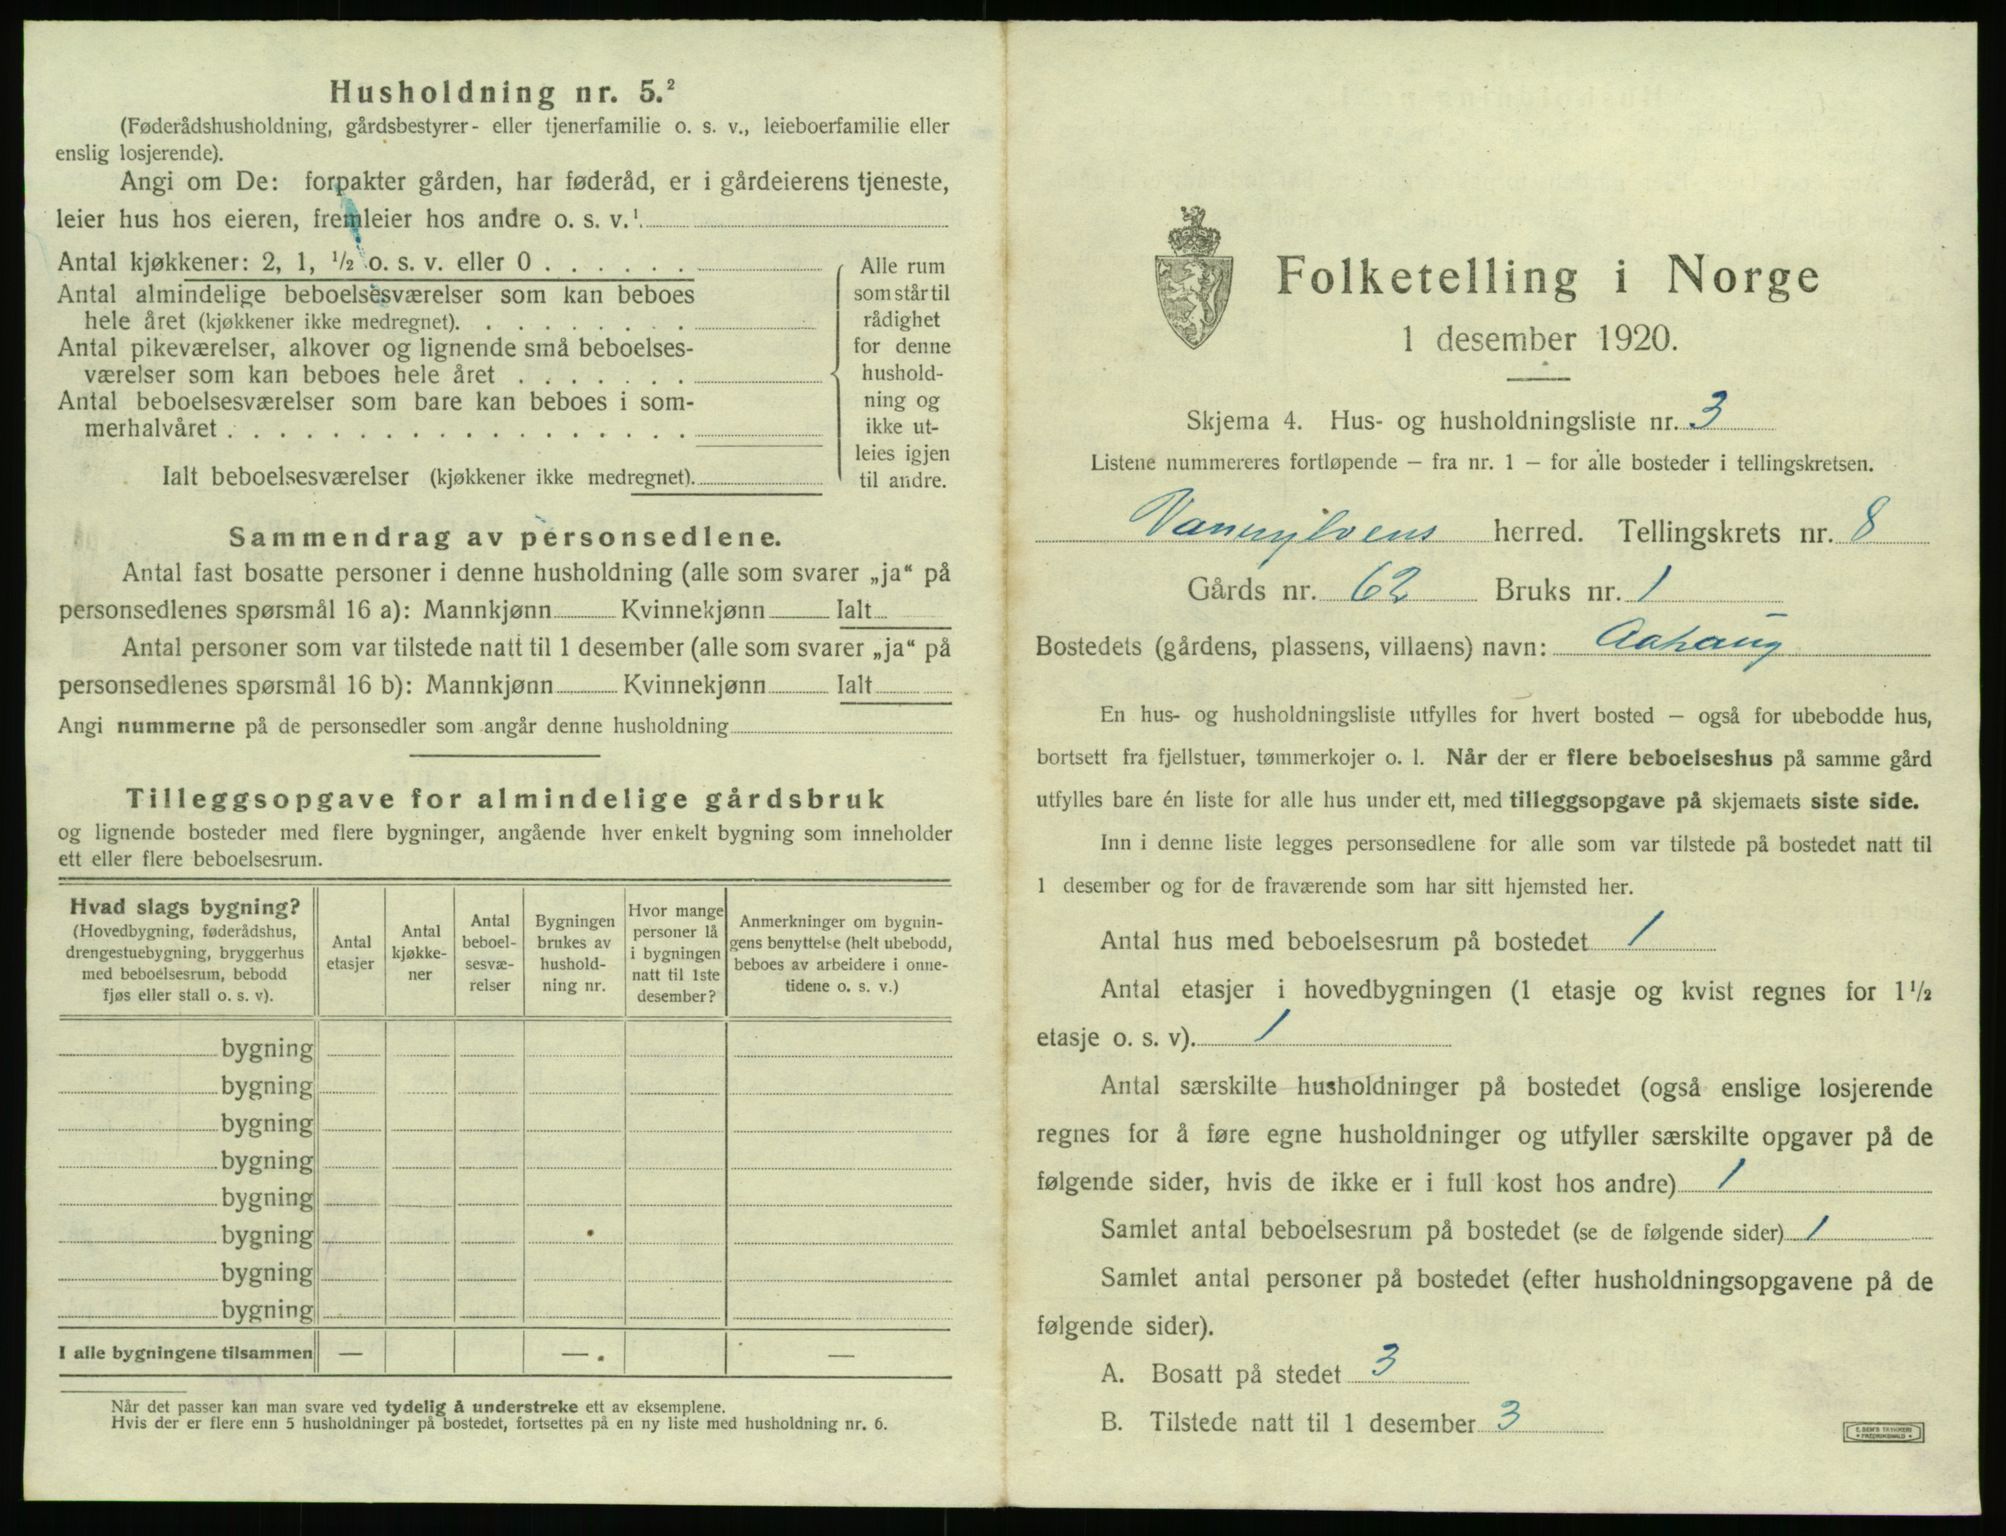 Husholdning nr. 5.²
(Føderådshusholdning, gårdsbestyrer- eller tjenerfamilie o. s. v., leieboerfamilie eller
enslig losjerende).
Angi om De: forpakter gården, har føderåd, er i gårdeierens tjeneste,
leier hus hos eieren, fremleier hos andre o. s. v.¹
Antal kjøkkener: 2, 1, ½ o. s. v. eller 0 . . . . . .
Antal almindelige beboelsesværelser som kan beboes
hele året (kjøkkener ikke medregnet). . . . . . . . .
Antal pikeværelser, alkover og lignende små beboelses-
værelser som kan beboes hele året . . . . . . .
Antal beboelsesværelser som bare kan beboes i som-
merhalvåret . . . . . . . . . . . . . . . . . .
Ialt beboelsesværelser (kjøkkener ikke medregnet).
Alle rum
som står til
rådighet
for denne
hushold-
ning og
ikke ut-
leies igjen
til andre.
Sammendrag av personsedlene.
Antal fast bosatte personer i denne husholdning (alle som svarer „ja“ på
personsedlenes spørsmål 16 a): Mannkjønn Kvinnekjønn Ialt
Antal personer som var tilstede natt til 1 desember (alle som svarer „ja“ på
personsedlenes spørsmål 16 b): Mannkjønn Kvinnekjønn Ialt
Angi nummerne på de personsedler som angår denne husholdning
Tilleggsopgave for almindelige gårdsbruk
og lignende bosteder med flere bygninger, angående hver enkelt bygning som inneholder
ett eller flere beboelsesrum.
Hvad slags bygning?
(Hovedbygning, føderådshus,
drengestuebygning, bryggerhus
med beboelsesrum, bebodd
fjøs eller stall o. s. v).
Antal
etasjer
Antal
kjøkke-
ner
Antal
beboel-
sesvæ-
relser
Bygningen
brukes av
hushold-
ning nr.
Hvor mange
personer lå
i bygningen
natt til 1ste
desember?
Anmerkninger om bygnin-
gens benyttelse (helt ubebodd,
beboes av arbeidere i onne-
tidene o. s. v.)
bygning
bygning
bygning
bygning
bygning
bygning
bygning
bygning
I alle bygningene tilsammen — — —
Når det passer kan man svare ved tydelig å understreke ett av eksemplene.
Hvis der er flere enn 5 husholdninger på bostedet, fortsettes på en ny liste med husholdning nr. 6.
Folketelling i Norge
1 desember 1920.
Skjema 4. Hus- og husholdningsliste nr. 3
Listene nummereres fortløpende — fra nr. 1 — for alle bosteder i tellingskretsen.
Vannylvens herred. Tellingskrets nr. 8
Gårds nr. 62 Bruks nr. 1
Bostedets (gårdens, plassens, villaens) navn: Aahaug
En hus- og husholdningsliste utfylles for hvert bosted — også for ubebodde hus,
bortsett fra fjellstuer, tømmerkojer o. l. Når der er flere beboelseshus på samme gård
utfylles bare én liste for alle hus under ett, med tilleggsopgave på skjemaets siste side.
Inn i denne liste legges personsedlene for alle som var tilstede på bostedet natt til
1 desember og for de fraværende som har sitt hjemsted her.
Antal hus med beboelsesrum på bostedet 1
Antal etasjer i hovedbygningen (1 etasje og kvist regnes for 1½
etasje o. s. v). 1
Antal særskilte husholdninger på bostedet (også enslige losjerende
regnes for å føre egne husholdninger og utfyller særskilte opgaver på de
følgende sider, hvis de ikke er i full kost hos andre) 1
Samlet antal beboelsesrum på bostedet (se de følgende sider) 1
Samlet antal personer på bostedet (efter husholdningsopgavene på de
følgende sider).
A. Bosatt på stedet 3
B. Tilstede natt til 1 desember 3